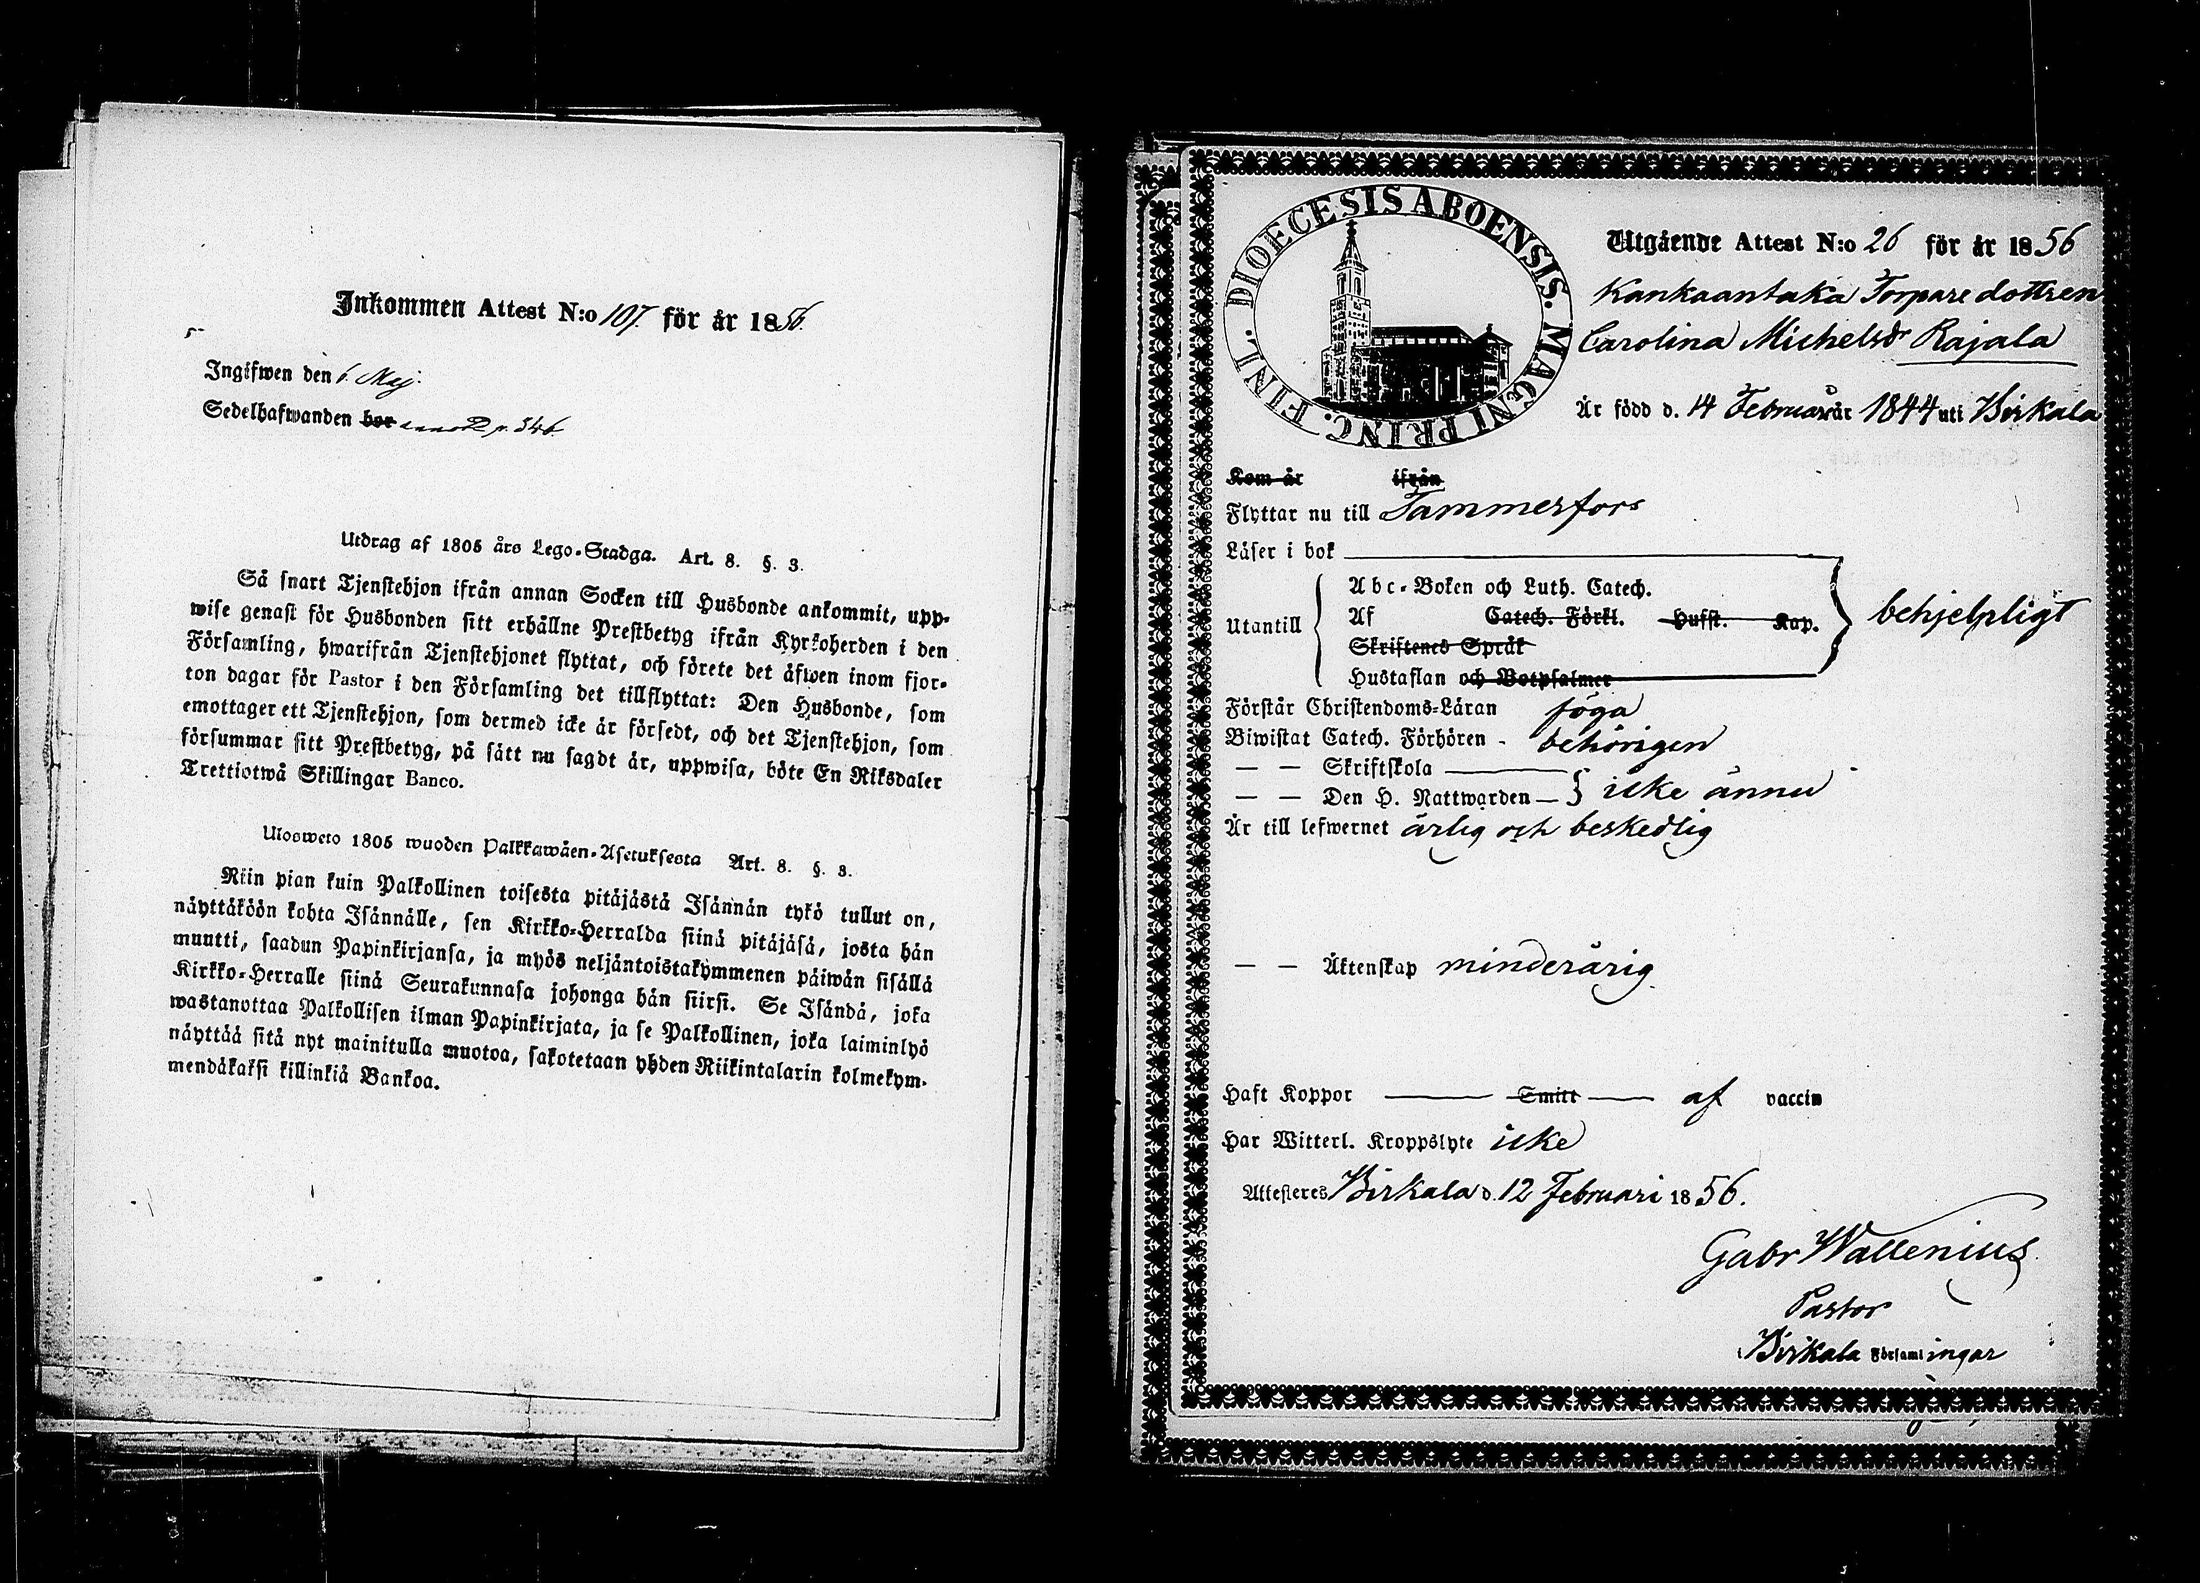 Inkommen Attest N:o 107. för år 1856.
Ingifwen den 6. Maj.
Sedelhafwanden bor p. 346.
Utdrag af 1805 års Lego-Stadga. Art. 8. §. 3.
Så snart Tjenstehjon ifrån annan Socken till Husbonde ankommit, upp-
wise genast för Husbonden sitt erhållne Prestbetyg ifrån Kyrkoherden i den
Församling, hwarifrån Tjenstehjonet flyttat, och förete det äfwen inom fjor-
ton dagar för Pastor i den Församling det tillflyttat: Den Husbonde, som
emottager ett Tjenstehjon, som dermed icke är försedt, och det Tjenstehjon, som
försummar sitt Prestbetyg, på sätt nu sagdt är, uppwisa, böte En Riksdaler
Trettiotwå Skillingar Banco.
Ulosweto 1805 wuoden Palkkawäen-Asetuksesta Art. 8. §. 3.
Niin pian kuin Palkollinen toisesta pitäjästä Isännän tykö tullut on,
näyttäköön kohta Isännälle, sen Kirkko-Herralda siinä pitäjäsä, josta hän
muutti, saadun Papinkirjansa, ja myös neljäntoistakymmenen päiwän sisällä
Kirkko-Herralle siinä Seurakunnasa johonga hän siirsi. Se Isändä, joka
wastanottaa Palkollisen ilman Papinkirjata, ja se Palkollinen, joka laiminlyö
näyttää sitä nyt mainitulla muotoa, sakotetaan yhden Riikintalarin kolmekym-
mendäkaksi killinkiä Bankoa.
DIOECESIS ABOENSIS. MAGNI PRINC. FINL.
Utgående Attest N:o 26 för år 1856
Kankaantaka Torpare dottren
Carolina Michelsdr Rajala
Är född d. 14 Februari år 1844 uti Birkala
Kom år ifrån
Flyttar nu till Tammerfors
Läser i bok
Abc-Boken och Luth. Catech.
Utantill Af Catech. Förkl. Hufst. Kap. behjelpligt
Skriftenes Språk
Hustaflan och Botpsalmer
Förstår Christendoms-Läran föga
Biwistat Catech. Förhören - behörigen
— — Skriftskola
— — Den H. Nattwarden — icke ännu
Är till lefwernet ärlig och beskedlig
— — Äktenskap minderårig
Haft Koppor Smitt af vaccin
Har Witterl. Kroppslyte icke
Attesteres Birkala d. 12 Februari 1856.
Gabr Wallenius
Pastor
i Birkala Församlingar